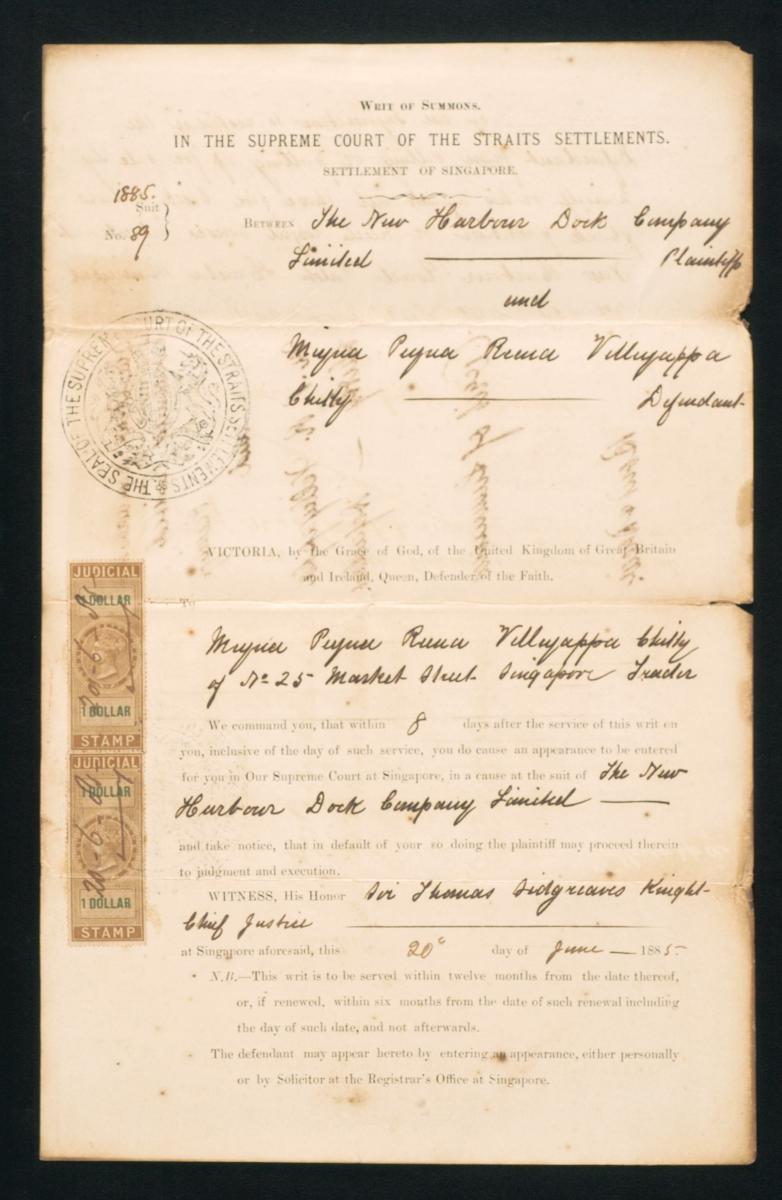 WRIT OF SUMMONS.
IN THE SUPREME COURT OF THE STRAITS SETTLEMENTS.
SETTLEMENT OF SINGAPORE.
1885.
Suit
No. 89
BETWEEN The New Harbour Dock Company
Limited Plaintiffs
and
Meyna Peyna Reena Villeyappa
Chitty Defendant
THE SEAL OF THE SUPREME COURT OF THE STRAITS SETTLEMENTS
VICTORIA, by the Grace of God, of the United Kingdom of Great Britain
and Ireland, Queen, Defender of the Faith.
To
Meyna Peyna Reena Villeyappa Chitty
of No 25 Market Street Singapore Trader
We command you, that within 8 days after the service of this writ on
you, inclusive of the day of such service, you do cause an appearance to be entered
for you in Our Supreme Court at Singapore, in a cause at the suit of The New
Harbour Dock Company Limited
and take notice, that in default of your so doing the plaintiff may proceed therein
to judgment and execution.
WITNESS, His Honor Sir Thomas Sidgreaves Knight
Chief Justice
at Singapore aforesaid, this 20" day of June 1885.
N.B.—This writ is to be served within twelve months from the date thereof,
or, if renewed, within six months from the date of such renewal including
the day of such date, and not afterwards.
The defendant may appear hereto by entering an appearance, either personally
or by Solicitor at the Registrar's Office at Singapore.
JUDICIAL
1 DOLLAR
20-6-85
1 DOLLAR
STAMP
JUDICIAL
1 DOLLAR
20-6-85
1 DOLLAR
STAMP